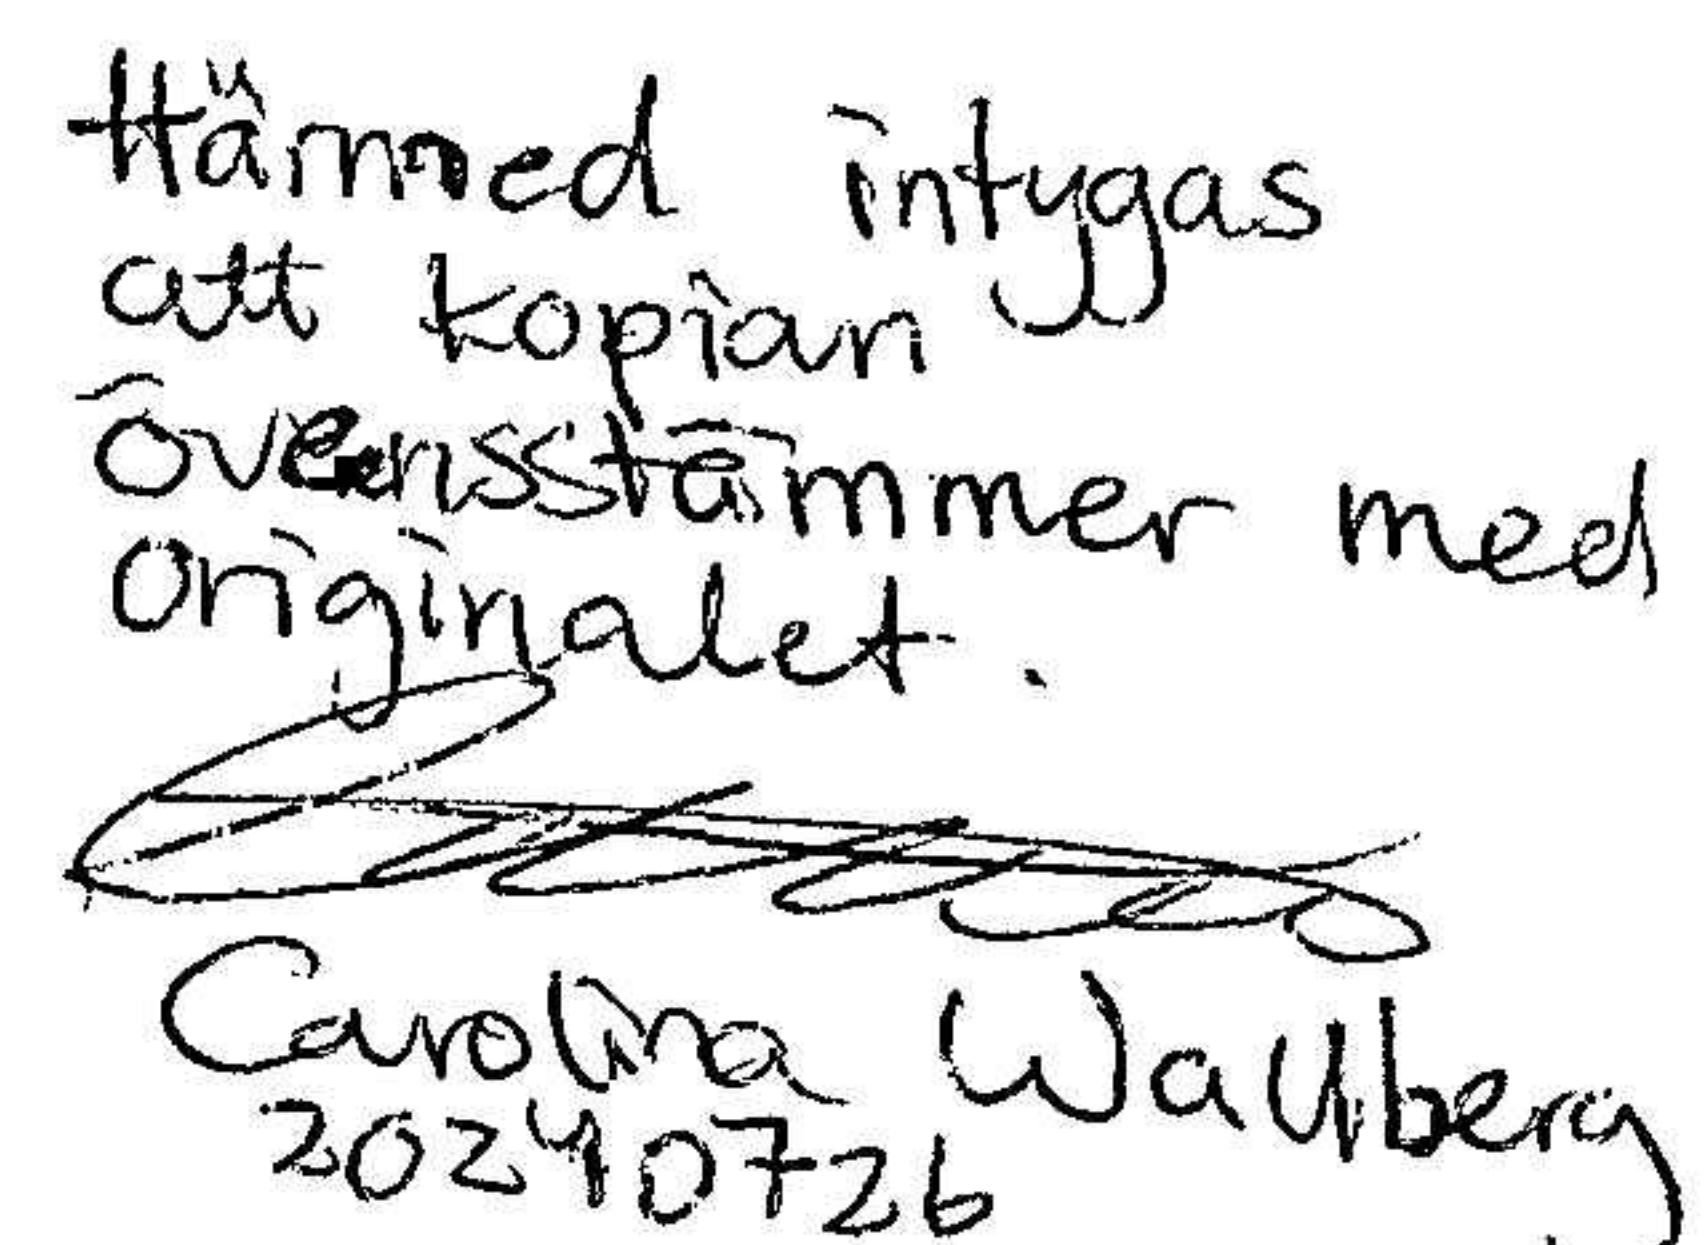 Härmed intygas
att kopian
överensstämmer med
originalet.
Carolina Wallberg
20240726